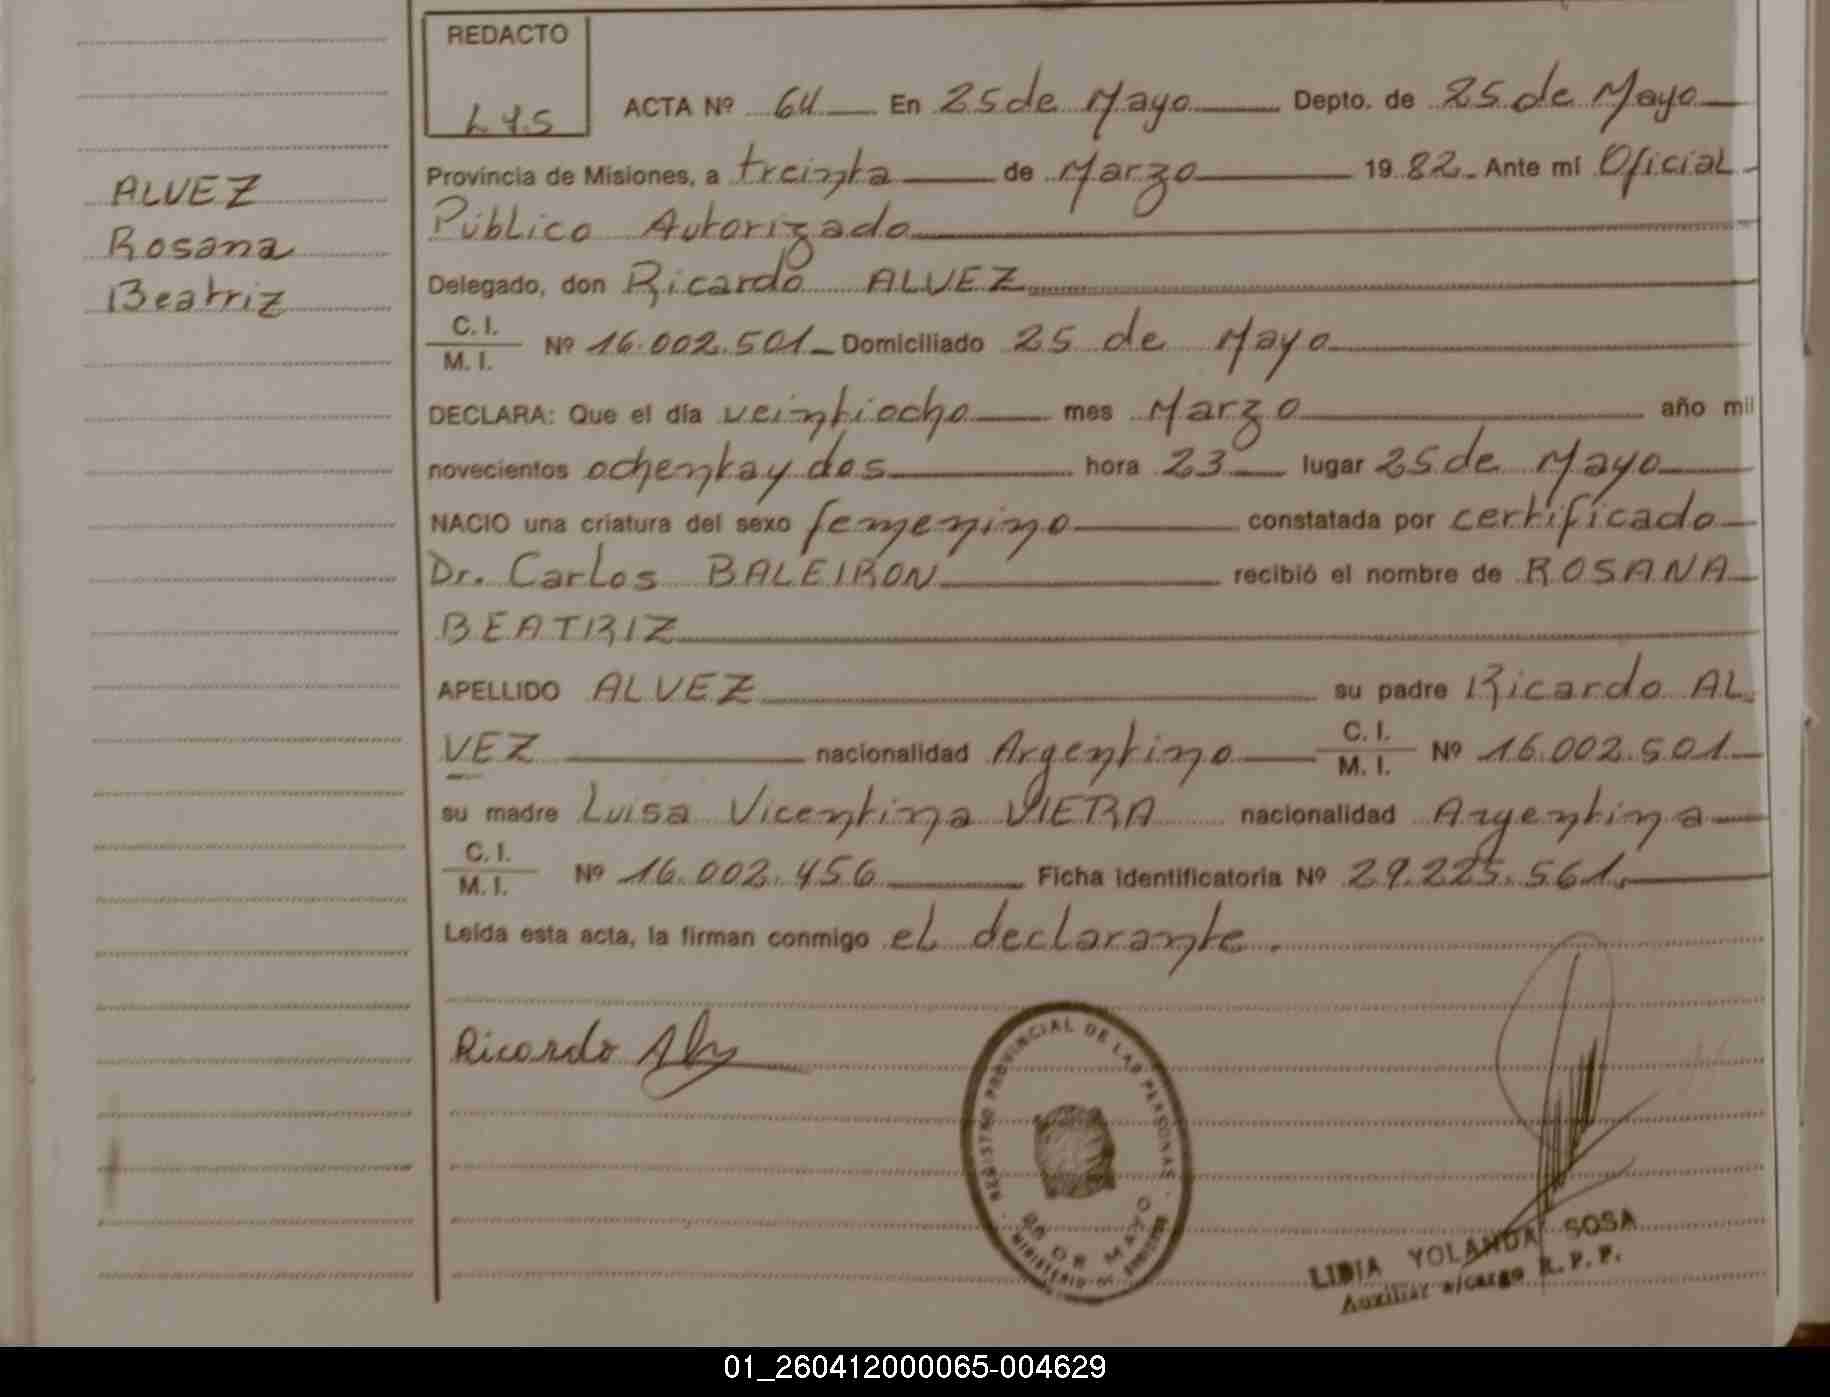 REDACTO
L Y S
ACTA Nº 64 En 25 de Mayo Depto. de 25 de Mayo
Provincia de Misiones, a treinta de Marzo 1982. Ante mí Oficial
Público Autorizado
Delegado, don Ricardo ALVEZ
C. I.
M. I. Nº 16.002.501 Domiciliado 25 de Mayo
DECLARA: Que el día veintiocho mes Marzo año mil
novecientos ochenta y dos hora 23 lugar 25 de Mayo
NACIO una criatura del sexo femenino constatada por certificado
Dr. Carlos BALEIRON recibió el nombre de ROSANA
BEATRIZ
APELLIDO ALVEZ su padre Ricardo AL
VEZ nacionalidad Argentino C. I. M. I. Nº 16.002.501
su madre Luisa Vicentina VIERA nacionalidad Argentina
C. I.
M. I. Nº 16.002.456 Ficha identificatoria Nº 29.225.561.
Leída esta acta, la firman conmigo el declarante.
ALVEZ
Rosana
Beatriz
Ricardo Alvez
REGISTRO PROVINCIAL DE LAS PERSONAS
25 DE MAYO
MINISTERIO DE GOBIERNO
LIDIA YOLANDA SOSA
Auxiliar a/cargo R. P. P.
01_260412000065-004629